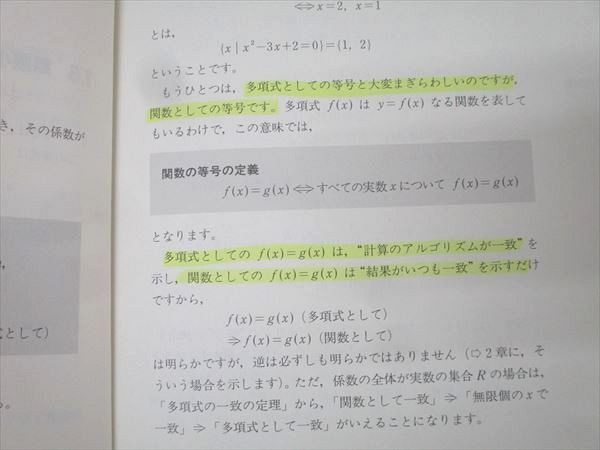 ⇔x=2, x=1
とは，
{x｜x²−3x+2=0}={1, 2}
ということです。
もうひとつは，多項式としての等号と大変まぎらわしいのですが，
関数としての等号です。多項式 f(x) は y=f(x) なる関数を表して
もいるわけで，この意味では，
関数の等号の定義
f(x)=g(x)⇔すべての実数 x について f(x)=g(x)
となります。
多項式としての f(x)=g(x) は，“計算のアルゴリズムが一致”を
示し，関数としての f(x)=g(x) は“結果がいつも一致”を示すだけ
ですから，
f(x)=g(x)（多項式として）
⇒f(x)=g(x)（関数として）
は明らかですが，逆は必ずしも明らかではありません（⇨2章に，そ
ういう場合を示します）。ただ，係数の全体が実数の集合 R の場合は，
「多項式の一致の定理」から，「関数として一致」⇒「無限個の x で
一致」⇒「多項式として一致」がいえることになります。
き，その係数が
式として）